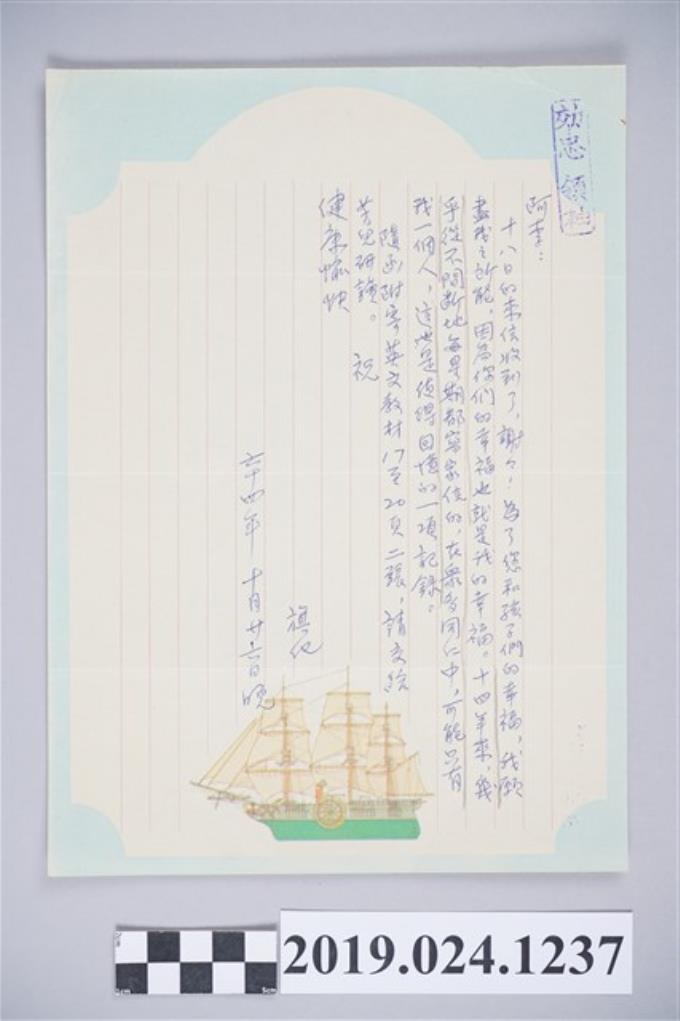 阿李：
十八日的來信收到了，謝々！為了您和孩子們的幸福，我願
盡我之所能，因為你們的幸福也就是我的幸福。十四年來，幾
乎從不間斷地每星期都寫家信的，在眾多同仁中，可能只有
我一個人，這也是值得回憶的一項記錄。
隨函附寄英文教材17至20頁二張，請交給
芳兒研讀。 祝
健康愉快
旗化
六十四年十月廿六日晚
2019.024.1237